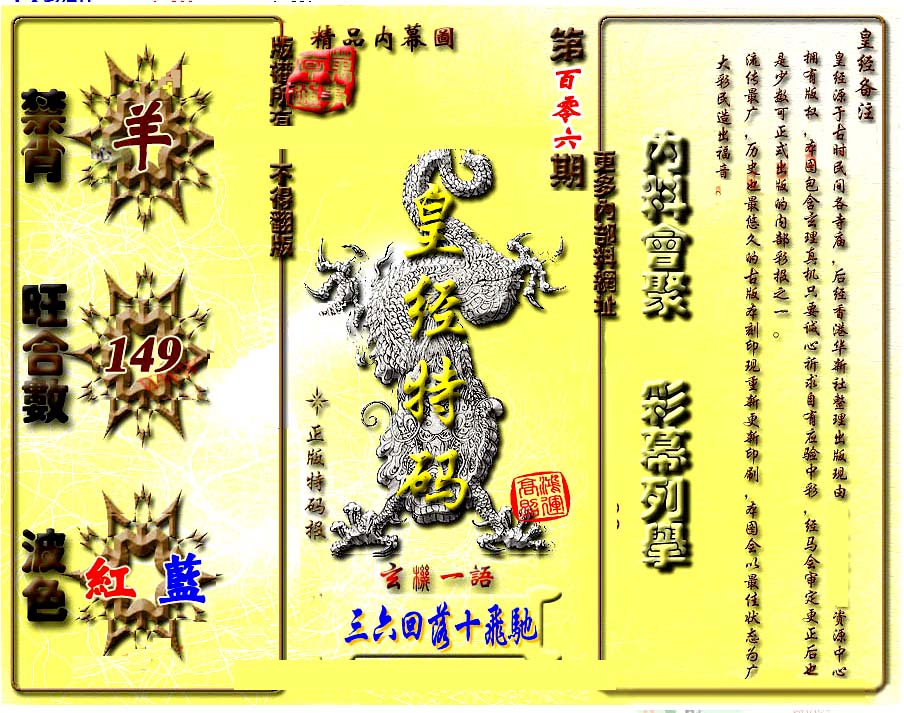 禁肖
羊
旺合數
149
波色
紅 藍
版權所有
不得翻版
精品內幕圖
第百零六期
更多內部料網址
皇经特码
正版特码报
鴻運高照
玄機一語
三六回落十飛馳
內料會聚
彩幕列舉
皇经备注
皇经源于古时民间各寺庙，后经香港华新社整理出版现由 资源中心
拥有版权，本图包含玄理真机只要诚心祈求自有应验中彩，经马会审定更正后也
是少数可正式出版的内部彩报之一。
流传最广，历史也最悠久的古版本刻印现重新更新印刷，本图会以最佳状态为广
大彩民造出福音